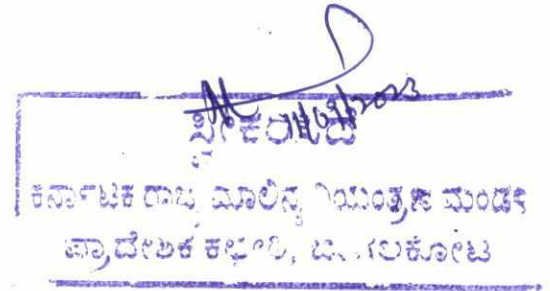 ಸ್ವೀಕರಿಸಿದೆ
ಕರ್ನಾಟಕ ರಾಜ್ಯ ಮಾಲಿನ್ಯ ನಿಯಂತ್ರಣ ಮಂಡಳಿ
ಪ್ರಾದೇಶಿಕ ಕಛೇರಿ, ಬಾಗಲಕೋಟ